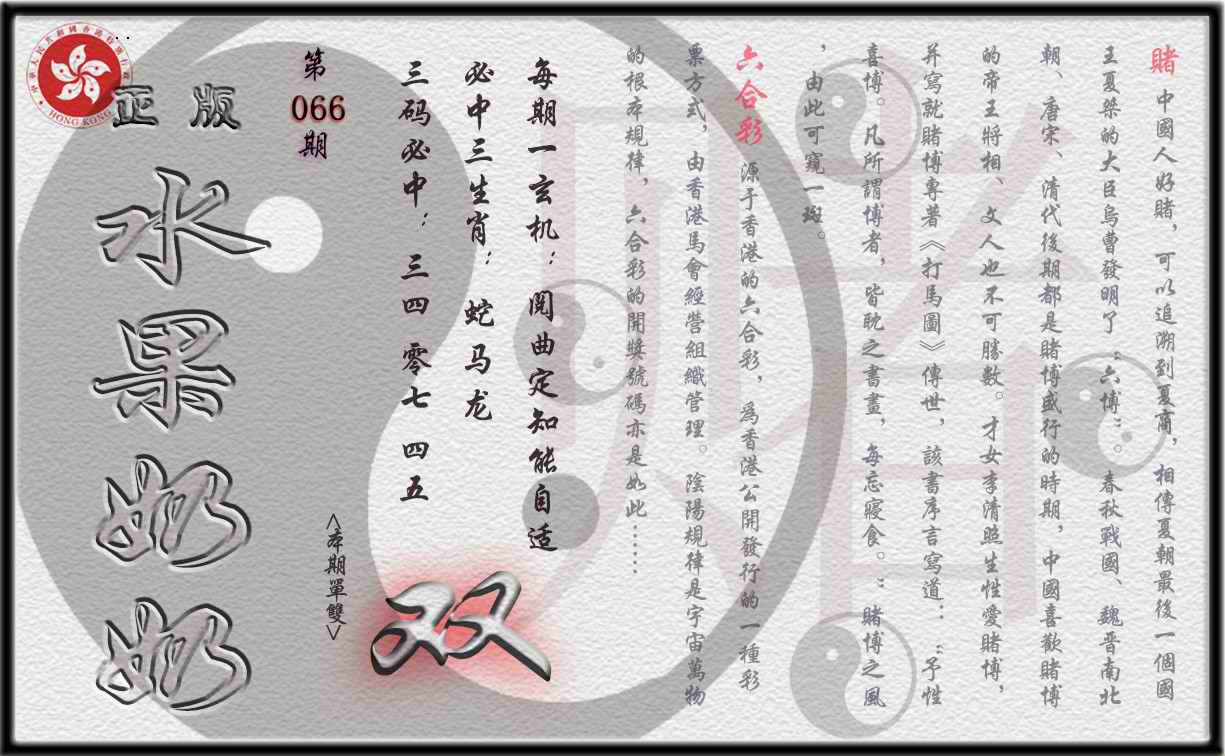 賭 中國人好賭，可以追溯到夏商，相傳夏朝最後一個國
王夏桀的大臣烏曹發明了“六博”。春秋戰國、魏晋南北
朝、唐宋、清代後期都是賭博盛行的時期，中國喜歡賭博
的帝王將相、文人也不可勝數。才女李清照生性愛賭博，
并寫就賭博專著《打馬圖》傳世，該書序言寫道：“予性
喜博。凡所謂博者，皆耽之書畫，每忘寢食。”賭博之風
，由此可窺一斑。
六合彩 源于香港的六合彩，爲香港公開發行的一種彩
票方式，由香港馬會經營組織管理。陰陽規律是宇宙萬物
的根本規律，六合彩的開獎號碼亦是如此……
每期一玄机：閱曲定知能自适
必中三生肖：蛇马龙
三码必中：三四 零七 四五
<本期單雙>
双
第
066
期
正版
水果奶奶
中華人民共和國香港特別行政區
HONG KONG
賭